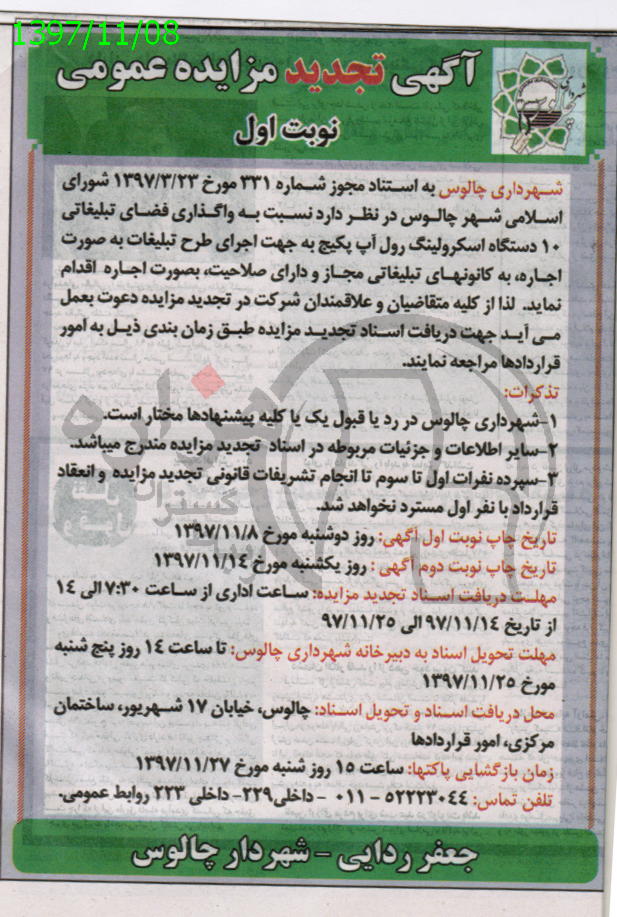 1397/11/08
آگهی تجدید مزایده عمومی
نوبت اول
شهرداری چالوس به استناد مجوز شماره ۳۳۱ مورخ ۱۳۹۷/۳/۲۳ شورای
اسلامی شهر چالوس در نظر دارد نسبت به واگذاری فضای تبلیغاتی
۱۰ دستگاه اسکرولینگ رول آپ پکیج به جهت اجرای طرح تبلیغات به صورت
اجاره، به کانونهای تبلیغاتی مجاز و دارای صلاحیت، بصورت اجاره اقدام
نماید. لذا از کلیه متقاضیان و علاقمندان شرکت در تجدید مزایده دعوت بعمل
می آید جهت دریافت اسناد تجدید مزایده طبق زمان بندی ذیل به امور
قراردادها مراجعه نمایند.
تذکرات:
۱-شهرداری چالوس در رد یا قبول یک یا کلیه پیشنهادها مختار است.
۲-سایر اطلاعات و جزئیات مربوطه در اسناد تجدید مزایده مندرج میباشد.
۳-سپرده نفرات اول تا سوم تا انجام تشریفات قانونی تجدید مزایده و انعقاد
قرارداد با نفر اول مسترد نخواهد شد.
تاریخ چاپ نوبت اول آگهی: روز دوشنبه مورخ ۱۳۹۷/۱۱/۸
تاریخ چاپ نوبت دوم آگهی : روز یکشنبه مورخ ۱۳۹۷/۱۱/۱۴
مهلت دریافت اسناد تجدید مزایده: ساعت اداری از ساعت ۷:۳۰ الی ۱۴
از تاریخ ۹۷/۱۱/۱۴ الی ۹۷/۱۱/۲۵
مهلت تحویل اسناد به دبیرخانه شهرداری چالوس: تا ساعت ۱۴ روز پنج شنبه
مورخ ۱۳۹۷/۱۱/۲۵
محل دریافت اسناد و تحویل اسناد: چالوس، خیابان ۱۷ شهریور، ساختمان
مرکزی، امور قراردادها
زمان بازگشایی پاکتها: ساعت ۱۵ روز شنبه مورخ ۱۳۹۷/۱۱/۲۷
تلفن تماس: ۵۲۲۲۳۰۴۴ - ۰۱۱ - داخلی۲۲۹- داخلی ۲۲۳ روابط عمومی.
جعفر ردایی - شهردار چالوس